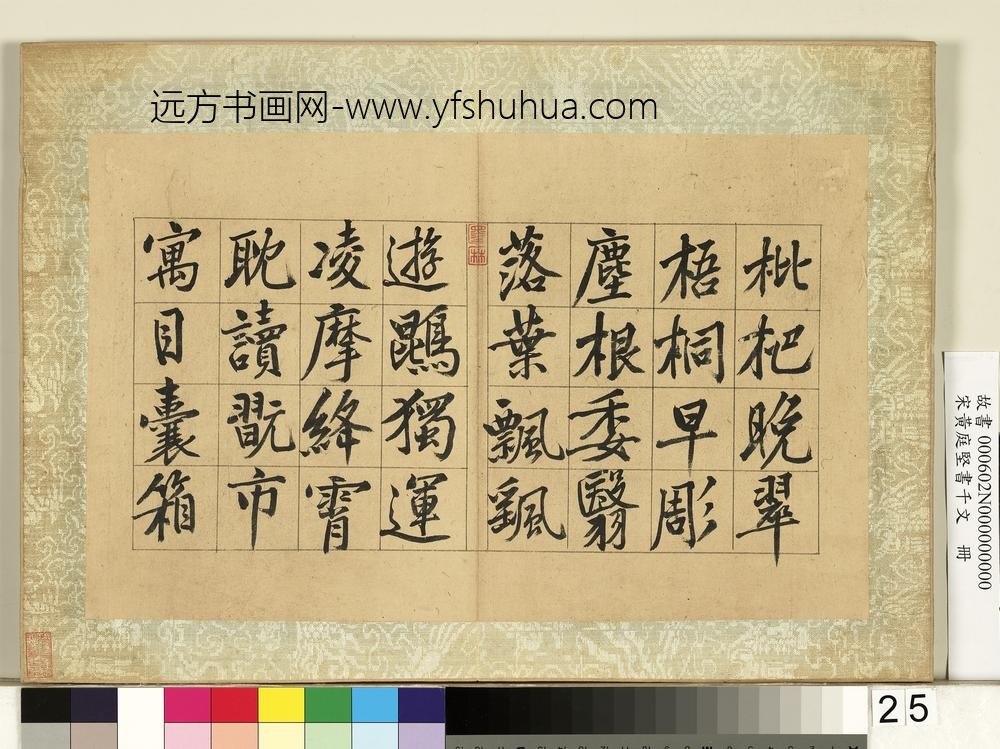 远方书画网-www.yfshuhua.com
枇杷晚翠
梧桐早彫
塵根委翳
落葉飄颻
遊鵾獨運
凌摩絳霄
耽讀翫市
寓目囊箱
故書 000602N000000000
宋黃庭堅書千文 冊
25